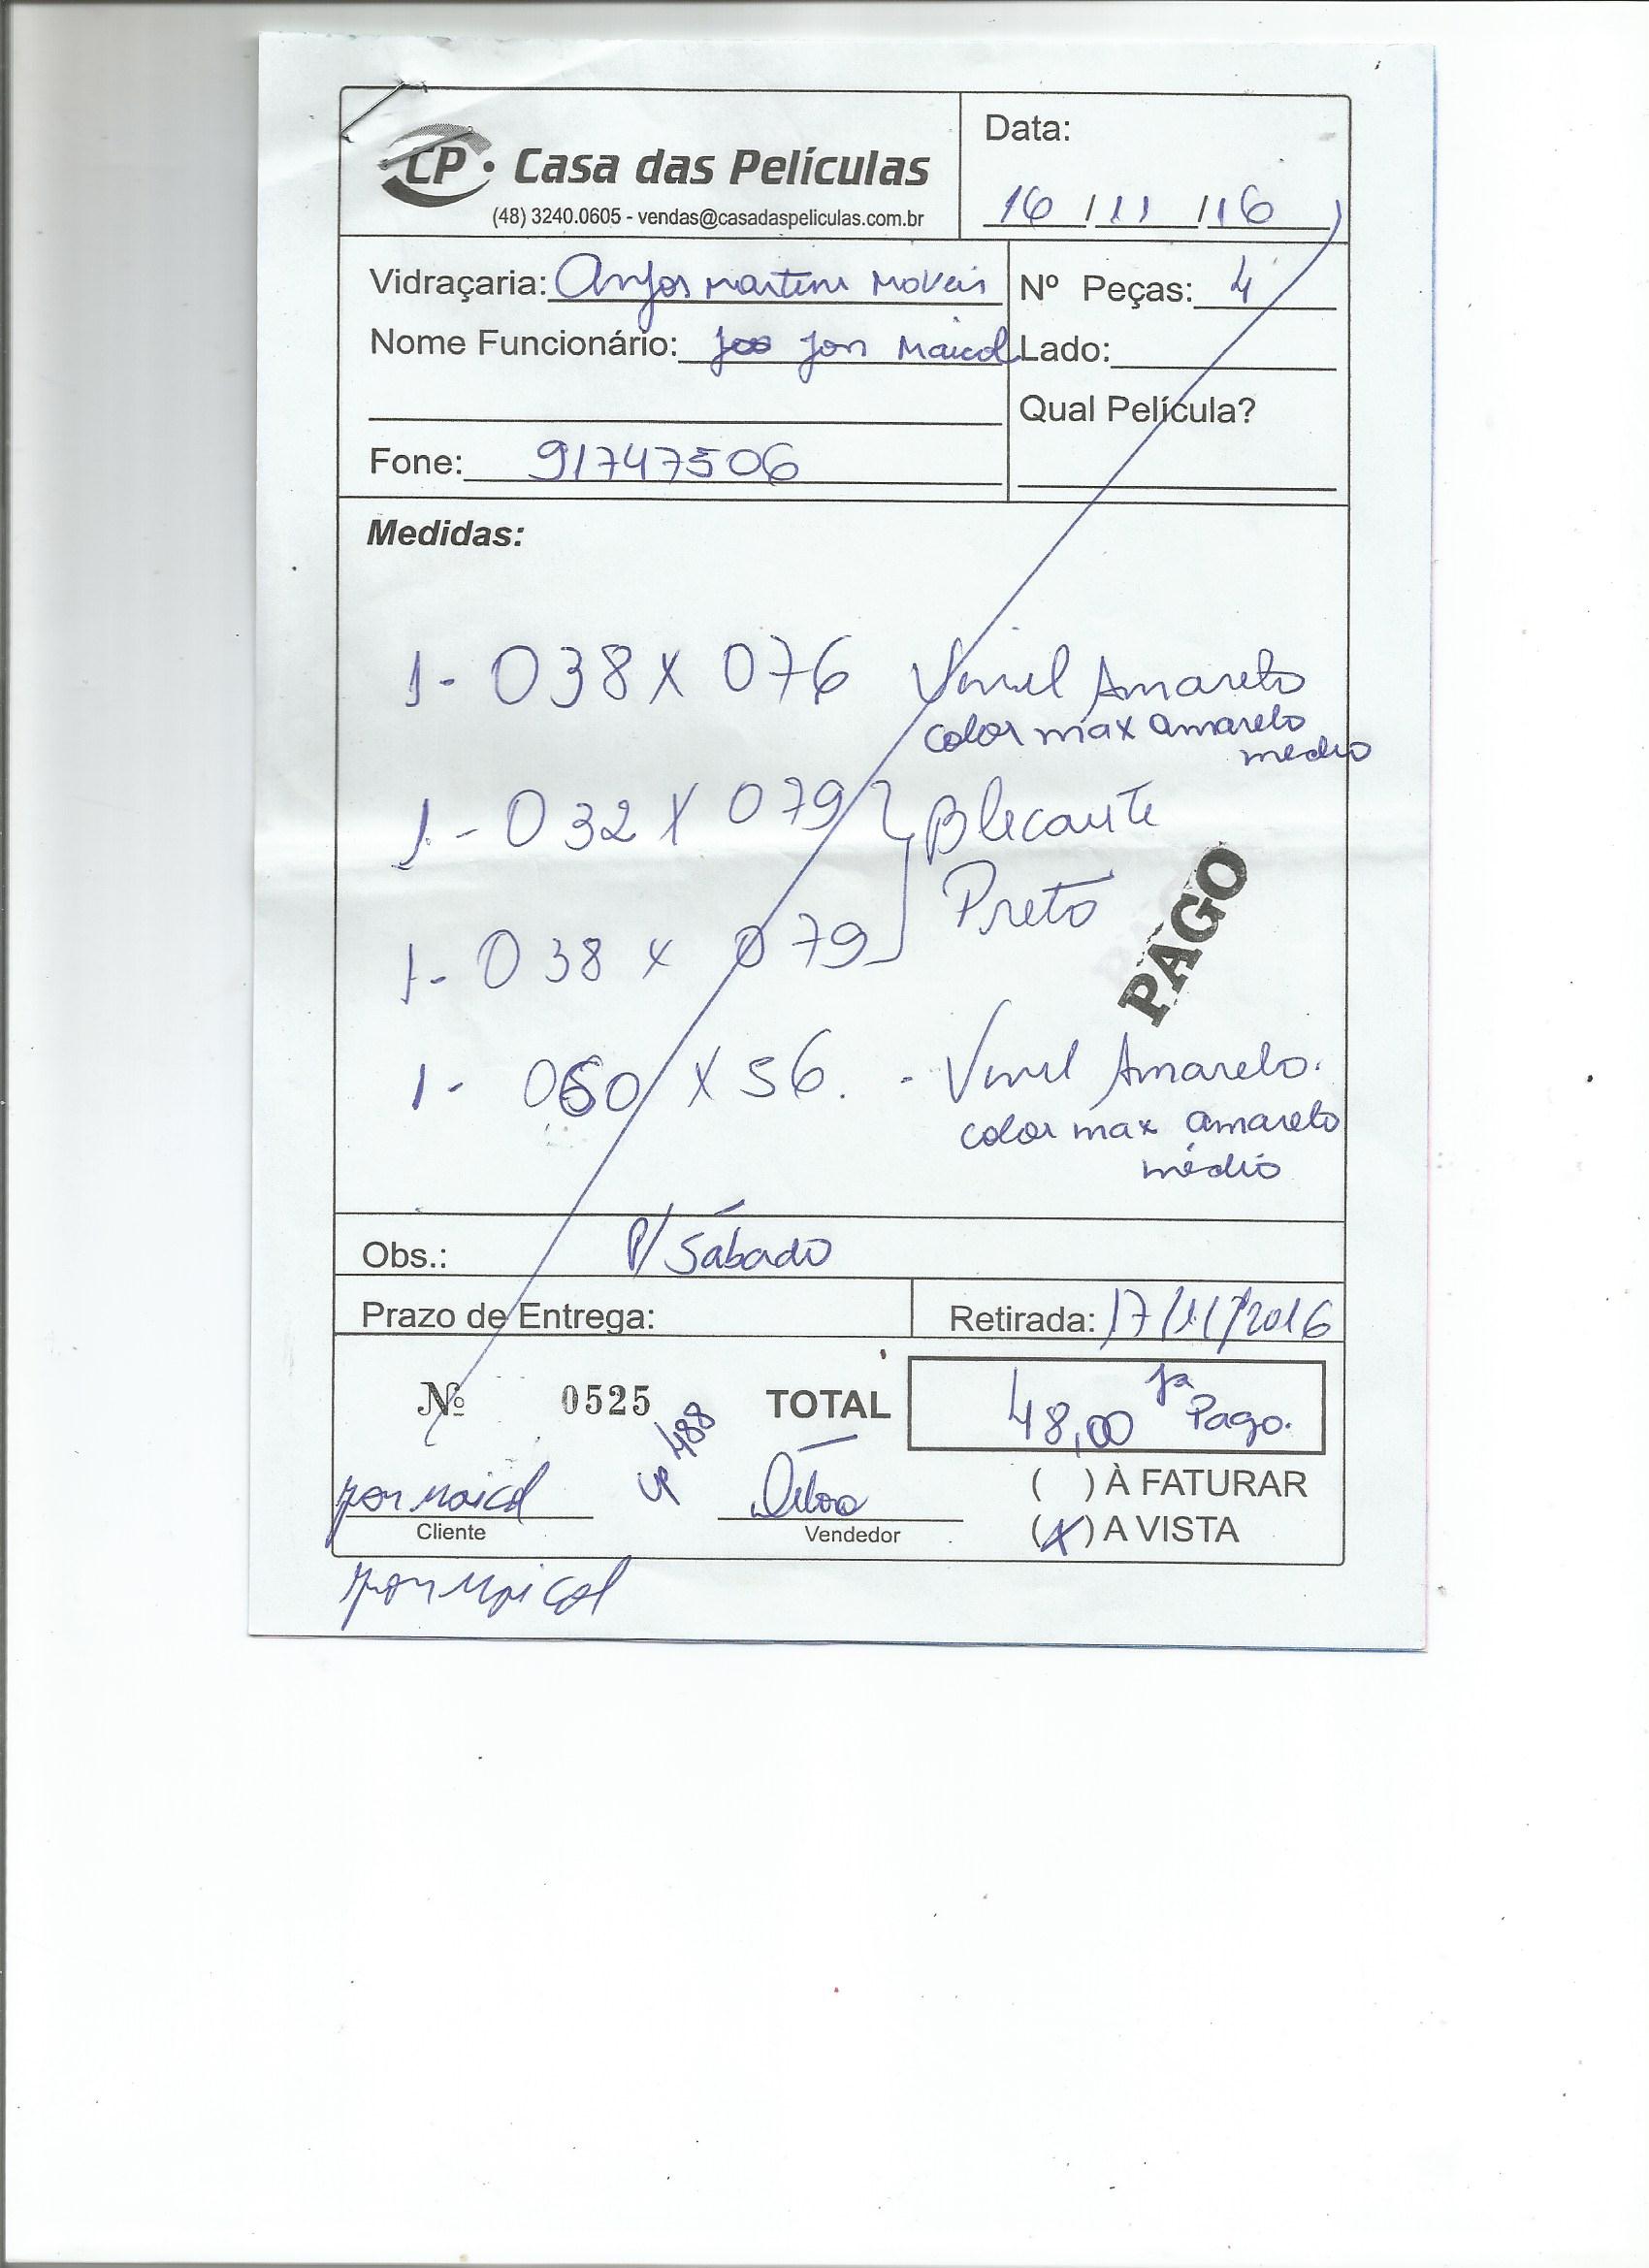 CP • Casa das Películas
(48) 3240.0605 - vendas@casadaspeliculas.com.br
Data:
16/11/16
Vidraçaria: Anjos Martins Moveis
Nº Peças: 4
Nome Funcionário: Jon Maicol
Lado:
Qual Película?
Fone: 91747506
Medidas:
1- 038 x 076 Vinil Amarelo
color max amarelo
medio
1- 032 x 079 } Blecaute
Preto
1- 038 x 079
PAGO
1- 060 x 56. - Vinil Amarelo.
color max amarelo
médio
Obs.: P/ Sábado
Prazo de Entrega:
Retirada: 17/11/2016
Nº 0525 TOTAL 48,00 já
Pago.
488
( ) À FATURAR
Jon Maicol
Cliente
Vendedor
(x) A VISTA
Jon Maicol